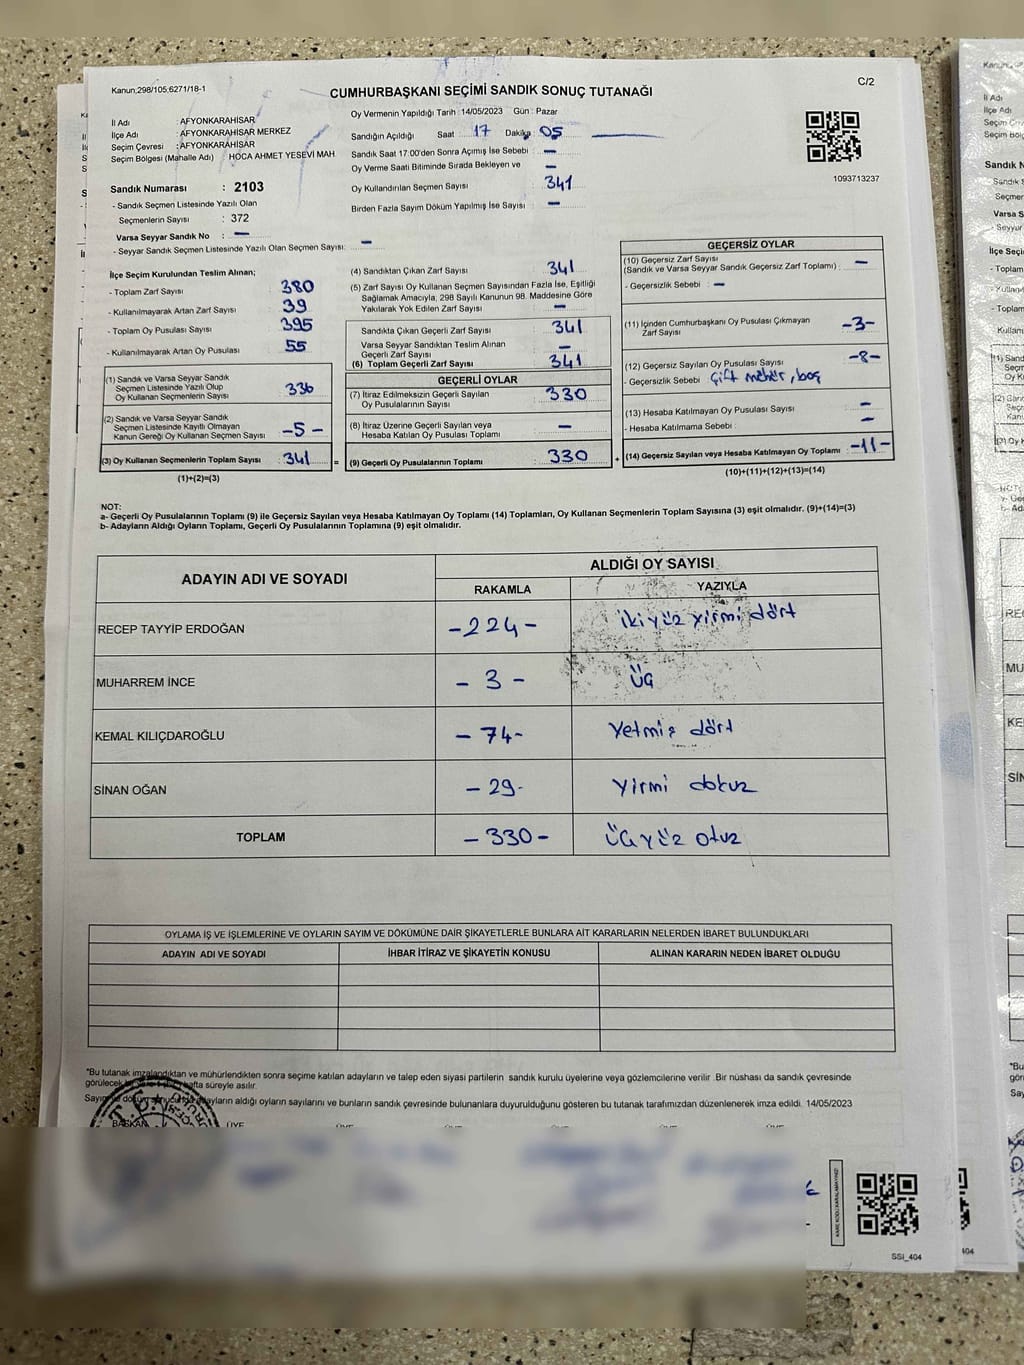 Kanun,298/105,6271/18-1
C/2
CUMHURBAŞKANI SEÇİMİ SANDIK SONUÇ TUTANAĞI
İl Adı : AFYONKARAHİSAR
İlçe Adı : AFYONKARAHİSAR MERKEZ
Seçim Çevresi : AFYONKARAHİSAR
Seçim Bölgesi (Mahalle Adı) HOCA AHMET YESEVİ MAH
Sandık Numarası : 2103
- Sandık Seçmen Listesinde Yazılı Olan
Seçmenlerin Sayısı : 372
Varsa Seyyar Sandık No : –
- Seyyar Sandık Seçmen Listesinde Yazılı Olan Seçmen Sayısı: –
Oy Vermenin Yapıldığı Tarih : 14/05/2023 Gün : Pazar
Sandığın Açıldığı Saat : 17 Dakika : 05
Sandık Saat 17:00'den Sonra Açımış İse Sebebi : –
Oy Verme Saati Bitiminde Sırada Bekleyen ve : –
Oy Kullandırılan Seçmen Sayısı : 341
Birden Fazla Sayım Döküm Yapılmış İse Sayısı : –
1093713237
İlçe Seçim Kurulundan Teslim Alınan;
- Toplam Zarf Sayısı : 380
- Kullanılmayarak Artan Zarf Sayısı : 39
- Toplam Oy Pusulası Sayısı : 395
- Kullanılmayarak Artan Oy Pusulası : 55
(1) Sandık ve Varsa Seyyar Sandık
Seçmen Listesinde Yazılı Olup
Oy Kullanan Seçmenlerin Sayısı : 336
(2) Sandık ve Varsa Seyyar Sandık
Seçmen Listesinde Kayıtlı Olmayan
Kanun Gereği Oy Kullanan Seçmen Sayısı : -5-
(3) Oy Kullanan Seçmenlerin Toplam Sayısı : 341
(1)+(2)=(3)
(4) Sandıktan Çıkan Zarf Sayısı : 341
(5) Zarf Sayısı Oy Kullanan Seçmen Sayısından Fazla İse, Eşitliği
Sağlamak Amacıyla; 298 Sayılı Kanunun 98. Maddesine Göre
Yakılarak Yok Edilen Zarf Sayısı : –
Sandıkta Çıkan Geçerli Zarf Sayısı : 341
Varsa Seyyar Sandıktan Teslim Alınan
Geçerli Zarf Sayısı : –
(6) Toplam Geçerli Zarf Sayısı : 341
GEÇERLİ OYLAR
(7) İtiraz Edilmeksizin Geçerli Sayılan
Oy Pusulalarının Sayısı : 330
(8) İtiraz Üzerine Geçerli Sayılan veya
Hesaba Katılan Oy Pusulası Toplamı : –
(9) Geçerli Oy Pusulalarının Toplamı : 330
GEÇERSİZ OYLAR
(10) Geçersiz Zarf Sayısı
(Sandık ve Varsa Seyyar Sandık Geçersiz Zarf Toplamı) : –
- Geçersizlik Sebebi : –
(11) İçinden Cumhurbaşkanı Oy Pusulası Çıkmayan
Zarf Sayısı : -3-
(12) Geçersiz Sayılan Oy Pusulası Sayısı : -8-
- Geçersizlik Sebebi : çift mühür, boş
(13) Hesaba Katılmayan Oy Pusulası Sayısı : –
- Hesaba Katılmama Sebebi : –
(14) Geçersiz Sayılan veya Hesaba Katılmayan Oy Toplamı : -11-
(10)+(11)+(12)+(13)=(14)
NOT:
a- Geçerli Oy Pusulalarının Toplamı (9) ile Geçersiz Sayılan veya Hesaba Katılmayan Oy Toplamı (14) Toplamları, Oy Kullanan Seçmenlerin Toplam Sayısına (3) eşit olmalıdır. (9)+(14)=(3)
b- Adayların Aldığı Oyların Toplamı, Geçerli Oy Pusulalarının Toplamına (9) eşit olmalıdır.
ADAYIN ADI VE SOYADI ALDIĞI OY SAYISI
RAKAMLA YAZIYLA
RECEP TAYYİP ERDOĞAN -224- iki yüz yirmi dört
MUHARREM İNCE -3- Üç
KEMAL KILIÇDAROĞLU -74- Yetmiş dört
SİNAN OĞAN -29- Yirmi dokuz
TOPLAM -330- Üç yüz otuz
OYLAMA İŞ VE İŞLEMLERİNE VE OYLARIN SAYIM VE DÖKÜMÜNE DAİR ŞİKAYETLERLE BUNLARA AİT KARARLARIN NELERDEN İBARET BULUNDUKLARI
ADAYIN ADI VE SOYADI İHBAR İTİRAZ VE ŞİKAYETİN KONUSU ALINAN KARARIN NEDEN İBARET OLDUĞU
"Bu tutanak imzalandıktan ve mühürlendikten sonra seçime katılan adayların ve talep eden siyasi partilerin sandık kurulu üyelerine veya gözlemcilerine verilir .Bir nüshası da sandık çevresinde
görülecek hafta süreyle asılır.
adayların aldığı oyların sayılarını ve bunların sandık çevresinde bulunanlara duyurulduğunu gösteren bu tutanak tarafımızdan düzenlenerek imza edildi. 14/05/2023
BAŞKAN ÜYE ÜYE ÜYE ÜYE
SSİ_404